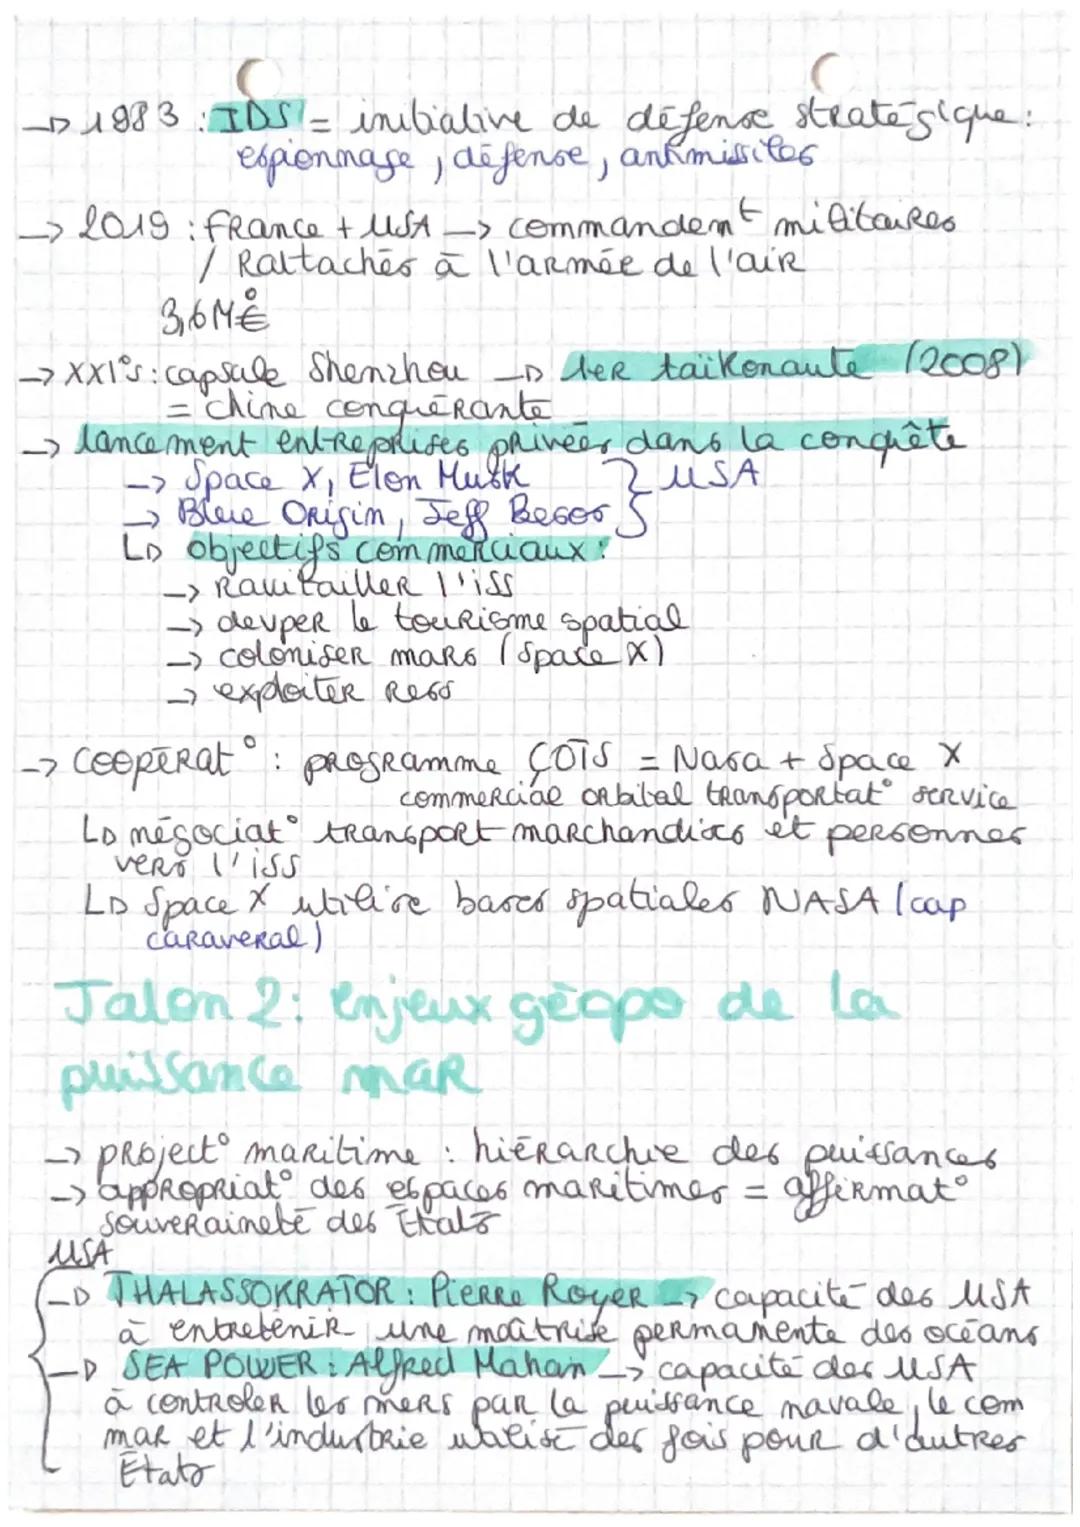 → 1983 : IDS = initiative de défense stratégique :
espionnage, défense, antimissiles
→ 2019 : France + USA → commandemt militaires
/ Rattachés à l'armée de l'air
3,6 M°€
→ XXI°s : capsule Shenzhou → 1er taïkonaute (2008)
= chine conquérante
→ lancement entreprises privées dans la conquête
→ Space X, Elon Musk } USA
→ Blue Origin, Jeff Besos
↳ objectifs commerciaux :
→ Ravitailler l'iss
→ devper le tourisme spatial
→ coloniser mars (Space X)
→ exploiter Ress
→ Coopérat° : programme COTS = Nasa + Space X
commercial orbital transportat° service
↳ négociat° transport marchandises et personnes
vers l'iss
↳ Space X utilise bases spatiales NASA (cap
caraveral)
Jalon 2 : enjeux géopo de la
puissance mar
→ project° maritime : hiérarchie des puissances
→ appropriat° des espaces maritimes = affirmat°
souveraineté des Etats
USA
→ THALASSOKRATOR : Pierre Royer → capacité des USA
à entretenir une maîtrise permanente des océans
→ SEA POWER : Alfred Mahan → capacité des USA
à controler les mers par la puissance navale, le com
mar et l'industrie utilisé des fois pour d'autres
Etats